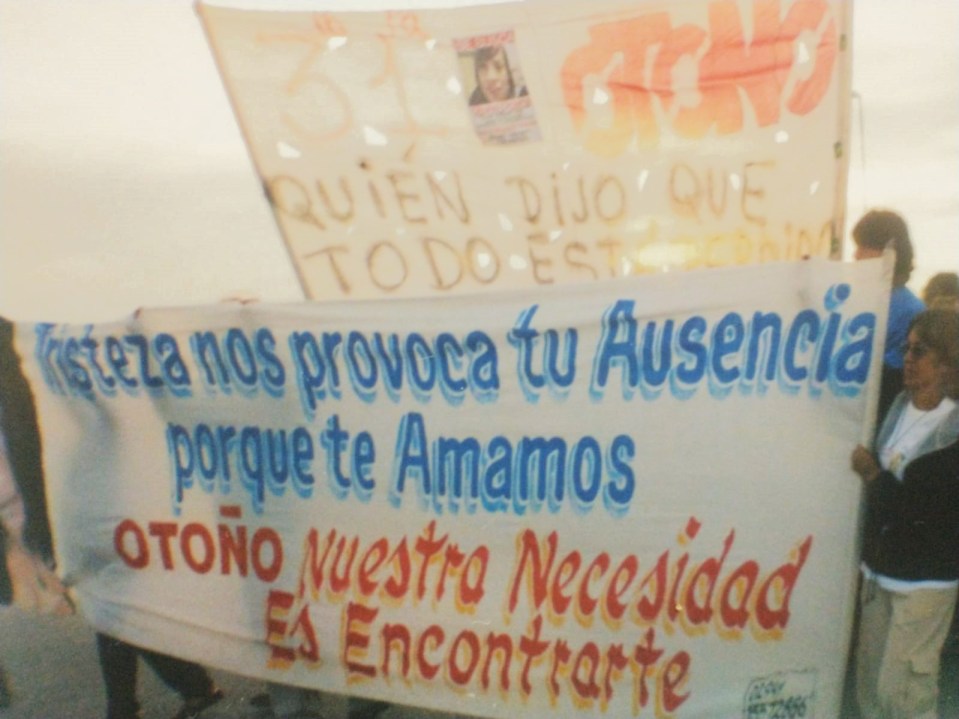 31
OTOÑO
QUIÉN DIJO QUE
TODO ESTÁ PERDIDO
Tristeza nos provoca tu Ausencia
porque te Amamos
OTOÑO Nuestra Necesidad
Es Encontrarte